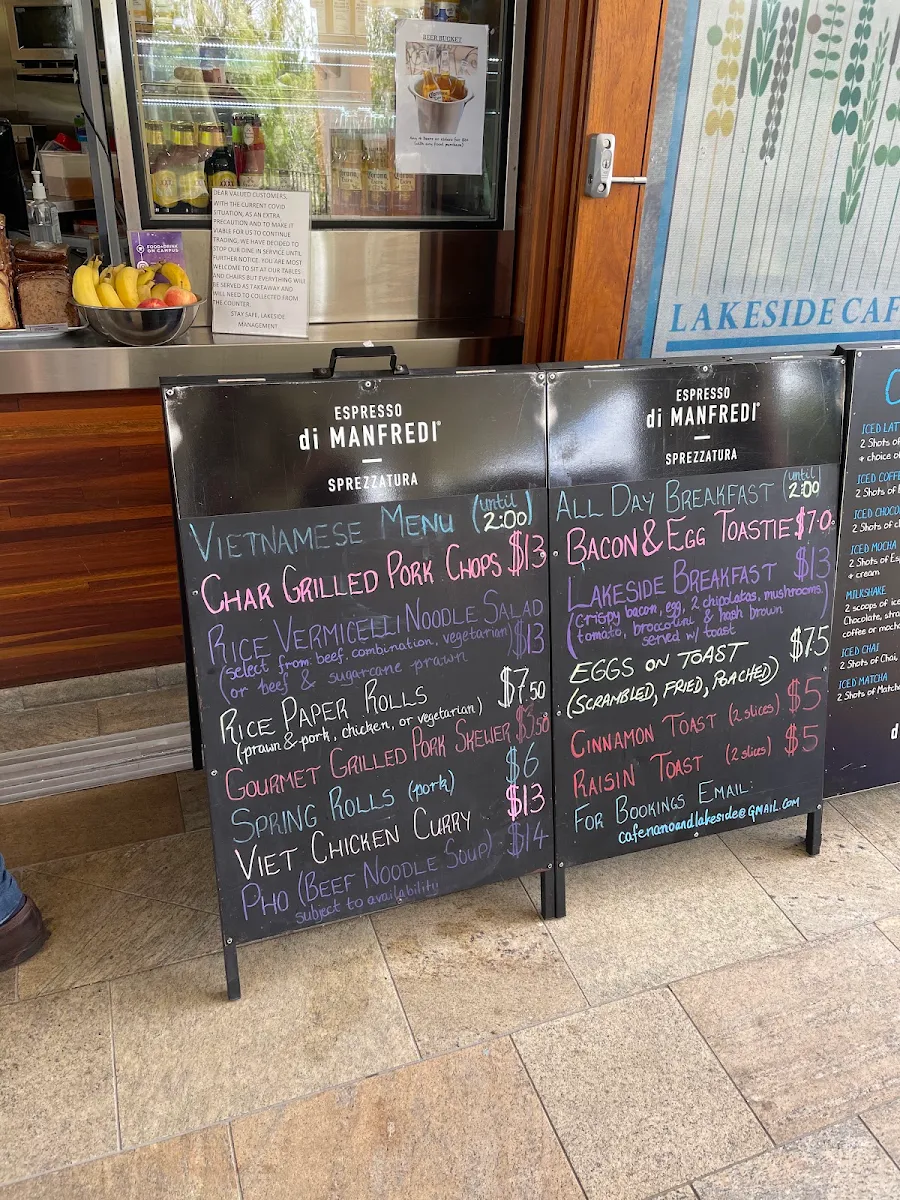 BEER BUCKET
DEAR VALUED CUSTOMERS,
WITH THE CURRENT COVID
SITUATION, AS AN EXTRA
PRECAUTION AND TO MAKE IT
VIABLE FOR US TO CONTINUE
TRADING, WE HAVE DECIDED TO
STOP OUR DINE IN SERVICE UNTIL
FURTHER NOTICE. YOU ARE MOST
WELCOME TO SIT AT OUR TABLES
AND CHAIRS BUT EVERYTHING WILL
BE SERVED AS TAKEAWAY AND
WILL NEED TO COLLECTED FROM
THE COUNTER.
STAY SAFE, LAKESIDE
MANAGEMENT
FOOD&DRINK
ON CAMPUS
LAKESIDE CAF
ESPRESSO
di MANFREDI
SPREZZATURA
VIETNAMESE MENU (until 2:00)
CHAR GRILLED PORK CHOPS $13
RICE VERMICELLI NOODLE SALAD
(select from: beef, combination, vegetarian) $13
(or beef & sugarcane prawn
RICE PAPER ROLLS $7.50
(prawn & pork, chicken, or vegetarian)
GOURMET GRILLED PORK SKEWER $3.50
SPRING ROLLS (pork) $6
VIET CHICKEN CURRY $13
PHO (BEEF NOODLE SOUP) $14
subject to availability
ESPRESSO
di MANFREDI
SPREZZATURA
ALL DAY BREAKFAST (until 2:00)
BACON & EGG TOASTIE $7.0
LAKESIDE BREAKFAST $13
(crispy bacon, egg, 2 chipolatas, mushrooms,
tomato, broccolini & hash brown
served w/ toast
EGGS ON TOAST $7.5
(SCRAMBLED, FRIED, POACHED)
CINNAMON TOAST (2 slices) $5
RAISIN TOAST (2 slices) $5
FOR BOOKINGS EMAIL:
cafenanoandlakeside@GMAIL.COM
ICED LATT
2 Shots of
+ choice of
ICED COFFE
2 Shots of
ICED CHOCO
2 Shots of c
ICED MOCHA
2 Shots of Es
+ cream
MILKSHAKE
2 scoops of ice
Chocolate, stra
coffee or moch
ICED CHAI
2 Shots of Chai,
ICED MATCHA
2 Shots of Matcha